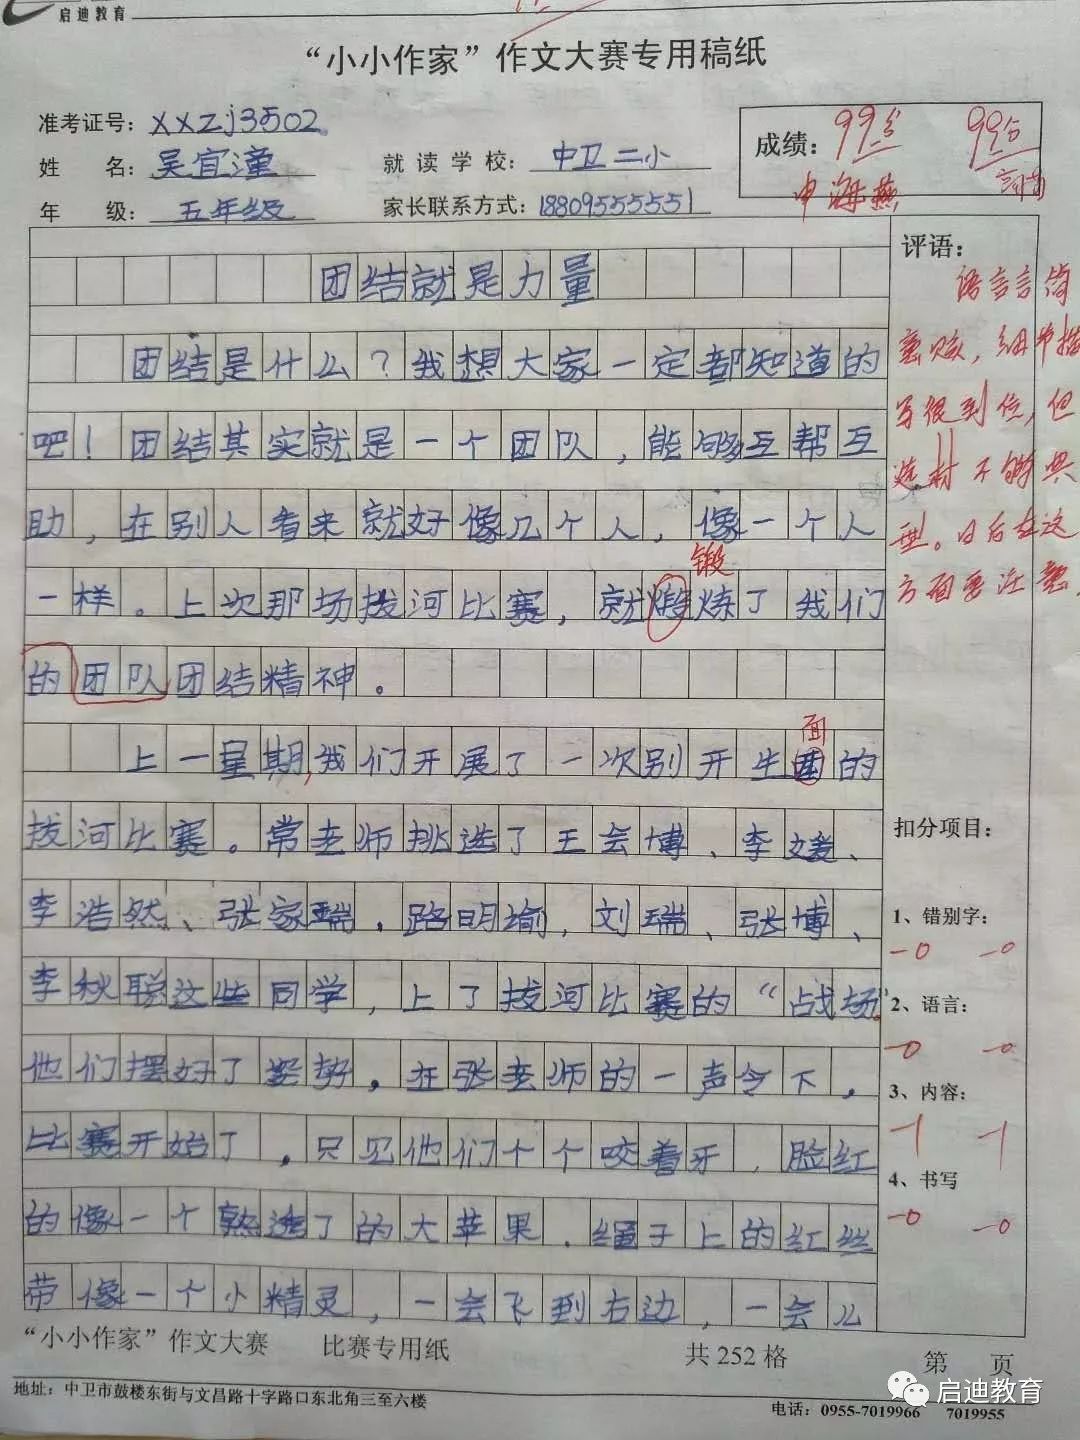 启迪教育
“小小作家”作文大赛专用稿纸
准考证号：XXZj3502
姓 名：吴宜潼
就读学校：中卫二小
年 级：五年级
家长联系方式：18809555551
成绩：99分 99分
申海燕
团结就是力量
团结是什么？我想大家一定都知道的
吧！团结其实就是一个团队，能够互帮互
助，在别人看来就好像几个人，像一个人
锻
一样。上次那场拔河比赛，就煅炼了我们
的团队团结精神。
面
上一星期，我们开展了一次别开生面的
拔河比赛。常老师挑选了王会博、李媛、
李浩然、张家瑞，路明瑜，刘瑞、张博、
李秋聪这些同学，上了拔河比赛的“战场”。
他们摆好了姿势，在张老师的一声令下，
比赛开始了。只见他们个个咬着牙，脸红
的像一个熟透了的大苹果．绳子上的红丝
带像一个小精灵，一会飞到右边，一会儿
评语：
语言言简
意赅，细节描
写很到位，但
选材不够典
型。日后在这
方面要注意
扣分项目：
1、错别字：
-0 -0
2、语言：
-0 -0
3、内容：
-1 -1
4、书写
-0 -0
“小小作家”作文大赛 比赛专用纸 共252格 第 页
地址：中卫市鼓楼东街与文昌路十字路口东北角三至六楼
电话：0955-7019966 7019955
启迪教育